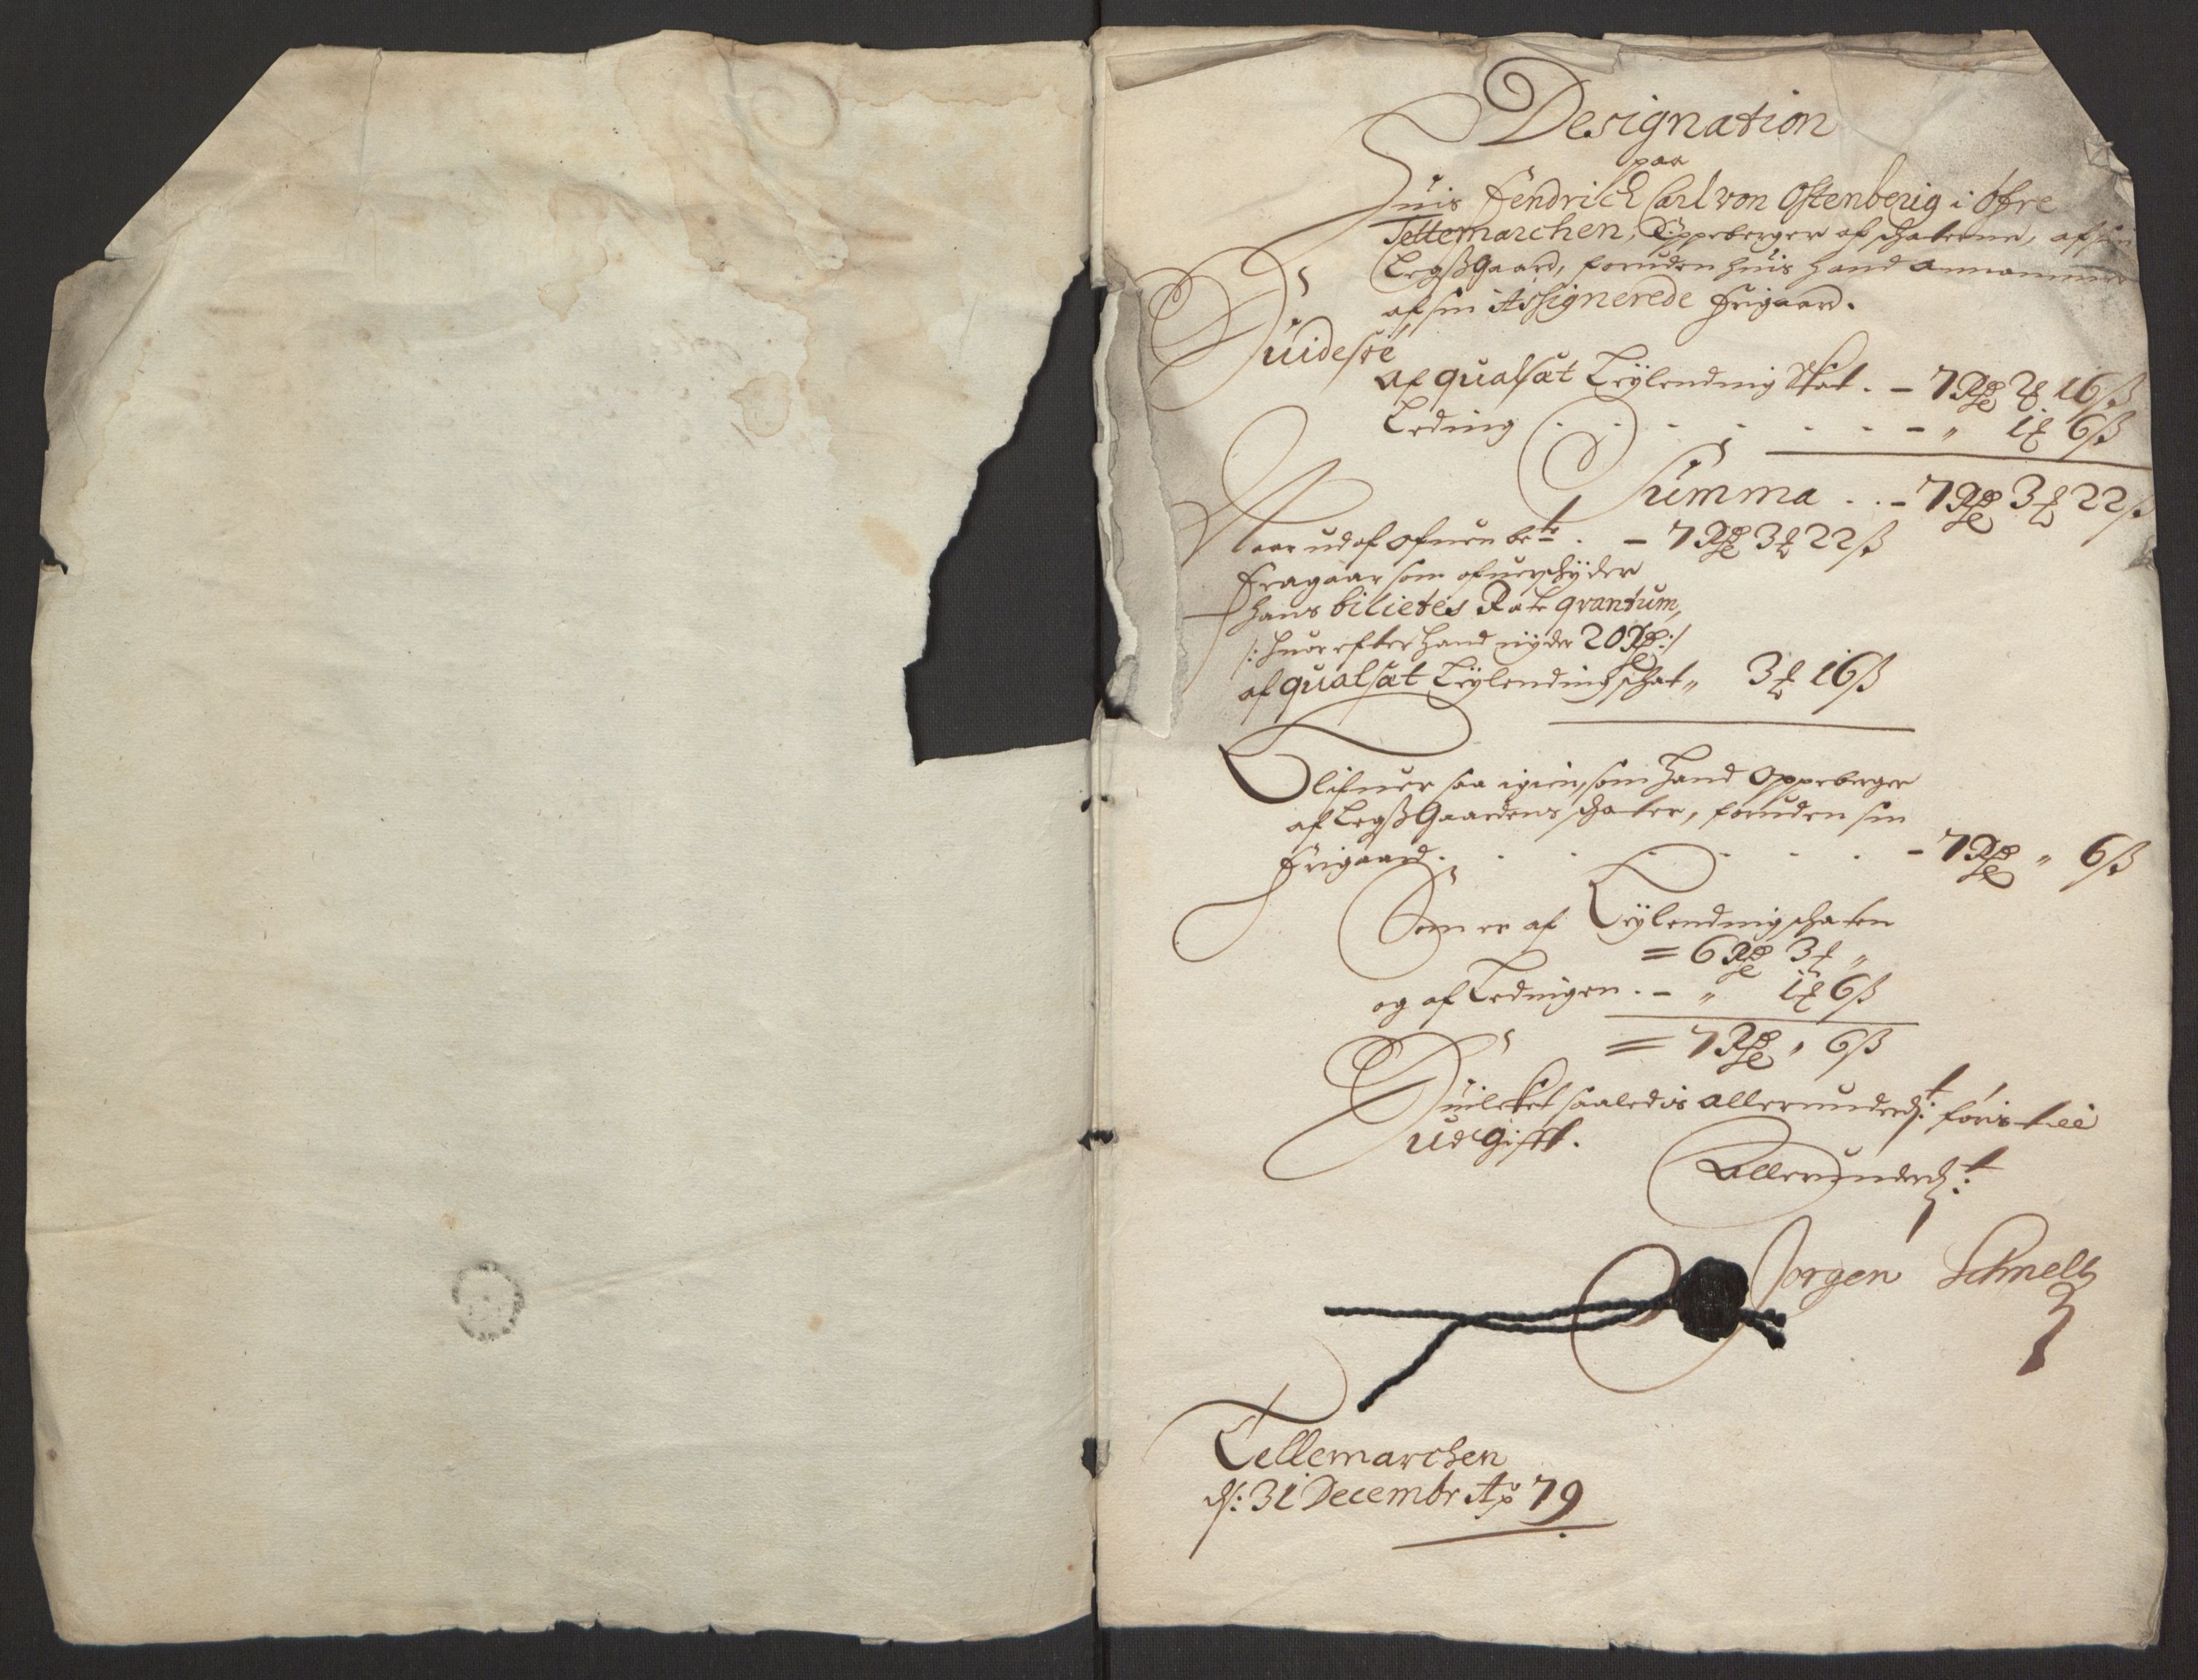 Designation
paa
Huis Fendrich Carl von Ostenberig i Øfre
Tellemarchen, Oppeberger af schatterne, af sin
LegßGaard, foruden huis Hand annammer
af sin Assignerede frigaard.
Huideføe
af qualsat Leÿlendning Skat . - 7 Rdr 2 ƒ 16 ß
Leding . . . . . . - " 1 ƒ 6 ß
Summa . . - 7 Rdr 3 ƒ 22 ß
Naar udaf ofuen bete . - 7 Rdr 3 ƒ 22 ß
fragaar som ofuerskÿder
hans bilietes Rate qvantum,
/: huor efter Hand nÿder 20 Rdr :/
af qualsat Leÿlendingschat " 3 ƒ 16 ß
Blifuer saa igien, som Hand oppeberger
af LegßGaardens schatter, foruden sin
frigaard . . . . . . . - 7 Rdr " 6 ß
Som er af Leÿlendnigschaten
= 6 Rdr 3 ƒ "
og af Ledingen . - " 1 ƒ 6 ß
= 7 Rdr " 6 ß
Huilcket saaledis allerunderd:t føris til
udGifft.
Allerunderd:t
Jorgen Schmelt
Tellemarchen
d: 31 Decembr Ao 79